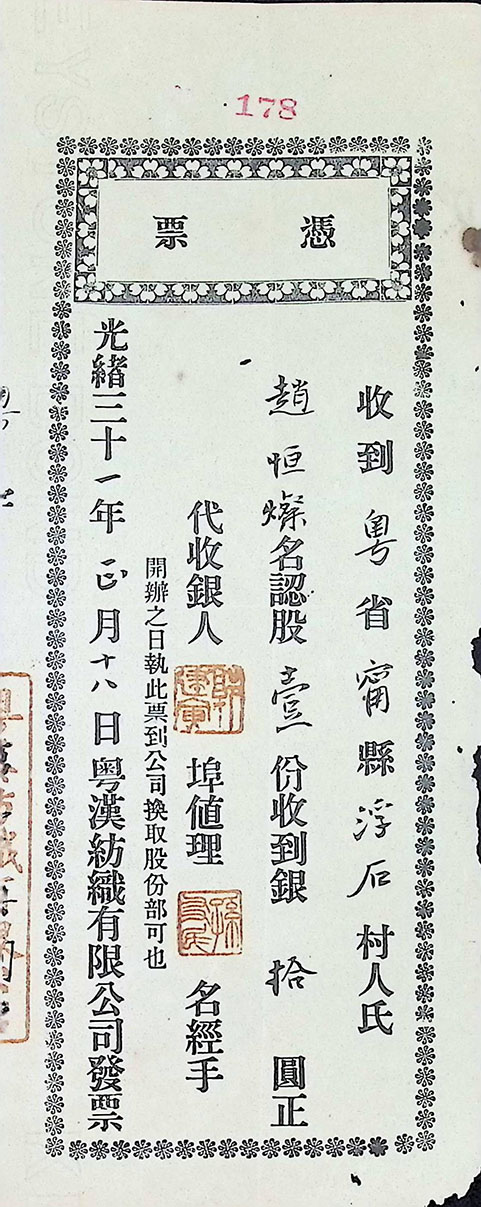 178
憑票
收到粵省甯縣浮石村人氏
趙恒燦名認股壹份收到銀拾圓正
代收銀人 埠值理 名經手
開辦之日執此票到公司換取股份部可也
光緒三十一年正月十八日粵漢紡織有限公司發票